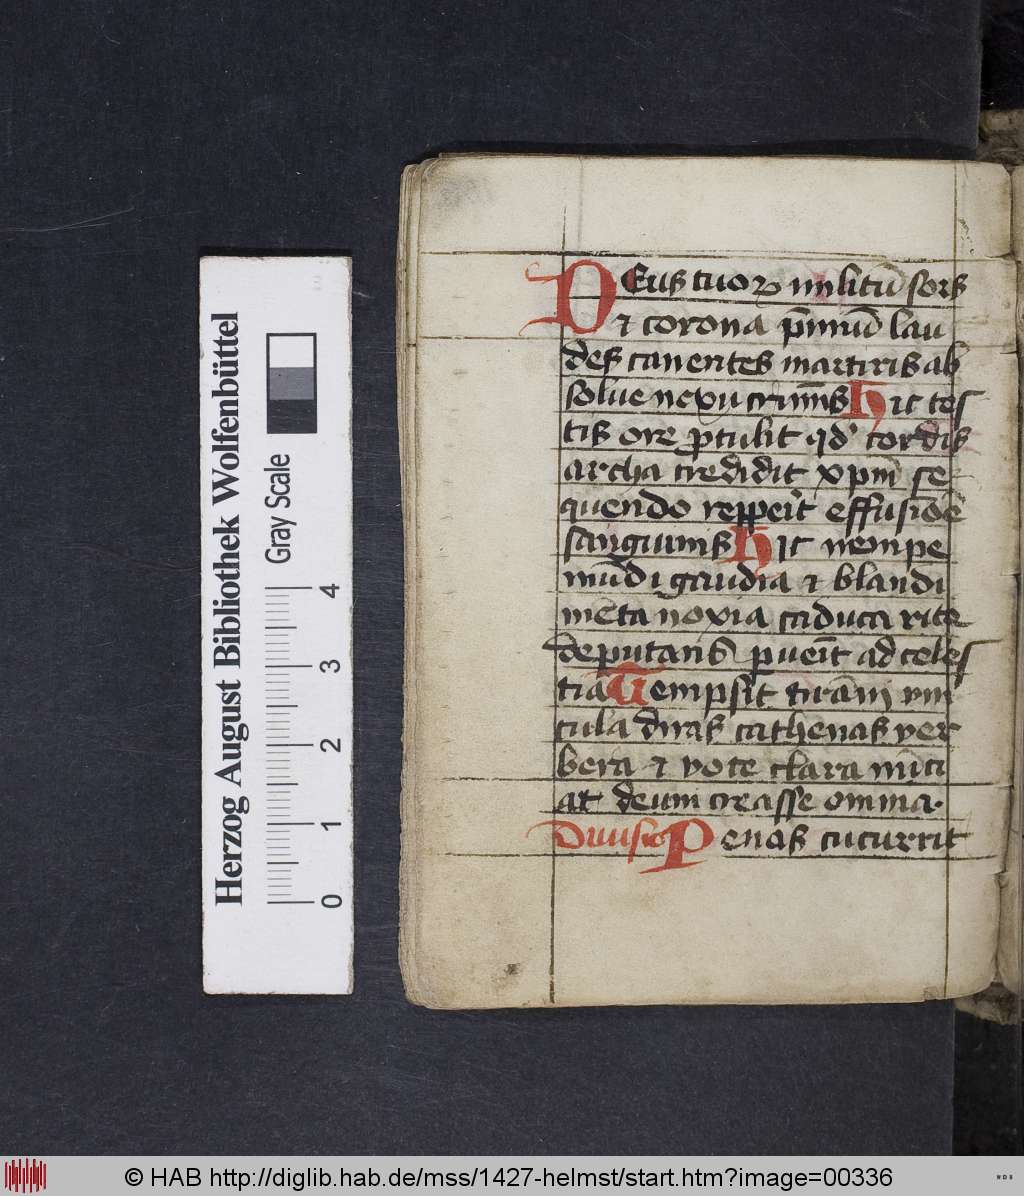 Deus tuoꝝ militū sors
⁊ corona p̄miū lau
des canentes martiris ab
solue nexu crim̄is Hic tes
tis ore ꝓtulit qd' cordis
archa credidit xp̄m se
quendo repperit effusiōe
sanguinis Hic nempe
mūdi gaudia ⁊ blandi
mēta noxia caduca rite
deputans pueīt ad celes
tia Tempsit tirāni vin
cula diras cathenas ver
bera ⁊ vote clara nūci
at deum creasse omnia.
Diuisio Penas cucurrit
Herzog August Bibliothek Wolfenbüttel
Gray Scale
0 1 2 3 4
© HAB http://diglib.hab.de/mss/1427-helmst/start.htm?image=00336